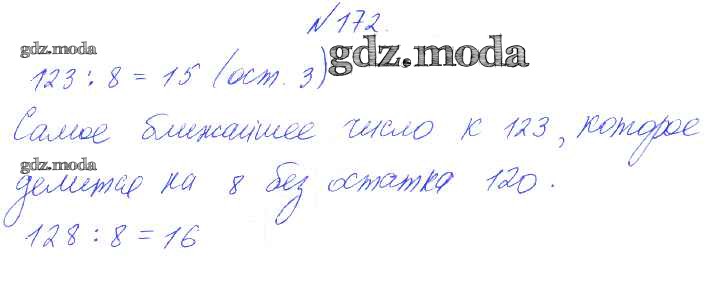 №172.
gdz.moda
123 : 8 = 15 (ост. 3)
gdz.moda
Самое ближайшее число к 123, которое
gdz.moda
делится на 8 без остатка 120.
128 : 8 = 16